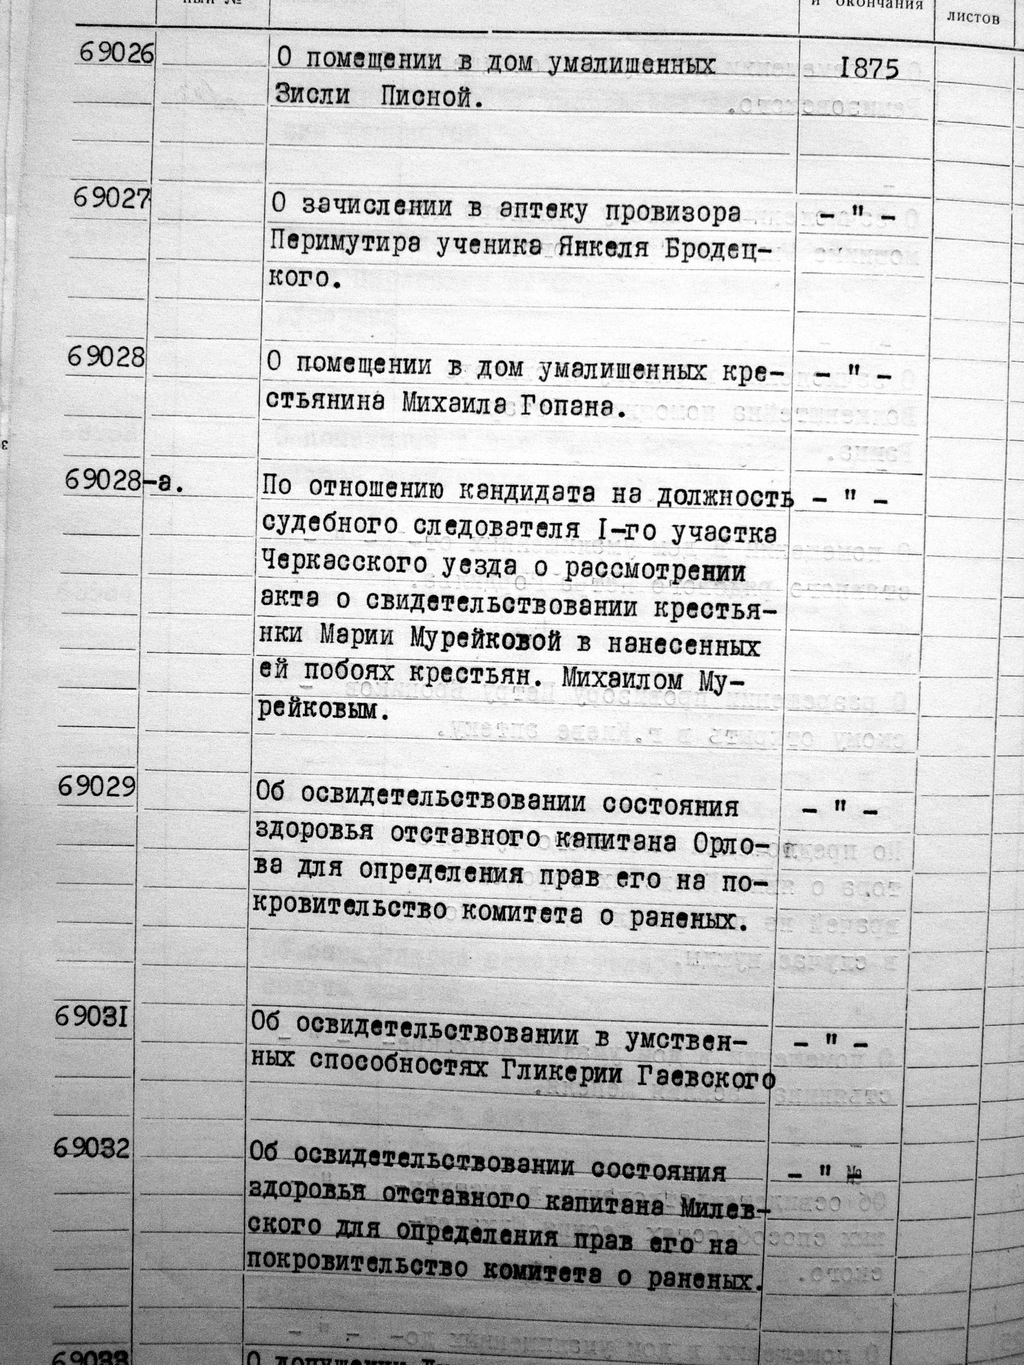 и окончания
листов
69026 О помещении в дом умалишенных 1875
Зисли Писной.
69027 О зачислении в аптеку провизора - " -
Перимутира ученика Янкеля Бродец-
кого.
69028 О помещении в дом умалишенных кре- - " -
стьянина Михаила Гопана.
69028-а. По отношению кандидата на должность - " -
судебного следователя I-го участка
Черкасского уезда о рассмотрении
акта о свидетельствовании крестья-
нки Марии Мурейковой в нанесенных
ей побоях крестьян. Михаилом Му-
рейковым.
69029 Об освидетельствовании состояния - " -
здоровья отставного капитана Орло-
ва для определения прав его на по-
кровительство комитета о раненых.
69031 Об освидетельствовании в умствен- - " -
ных способностях Гликерии Гаевского
69032 Об освидетельствовании состояния - " №
здоровья отставного капитана Милев-
ского для определения прав его на
покровительство комитета о раненых.
69033 О допущении